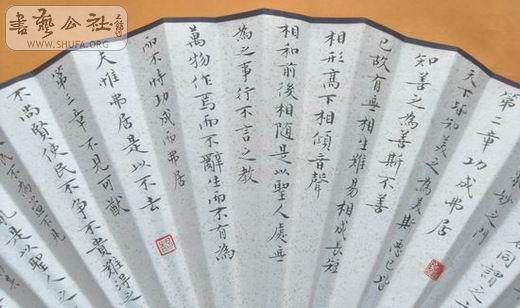 書藝公社
WWW.SHUFA.ORG
同謂之
妙之門
第二章功成弗居
天下皆知美之為美斯惡已皆
知善之為善斯不善
已故有無相生難易相成長短
相形高下相傾音聲
相和前後相隨是以聖人處無
為之事行不言之教
萬物作焉而不辭生而不有為
而不恃功成而弗居
夫惟弗居是以不去
第三章不見可欲
不尚賢使民不爭不貴難得之
民不為盜不見
是以聖人之